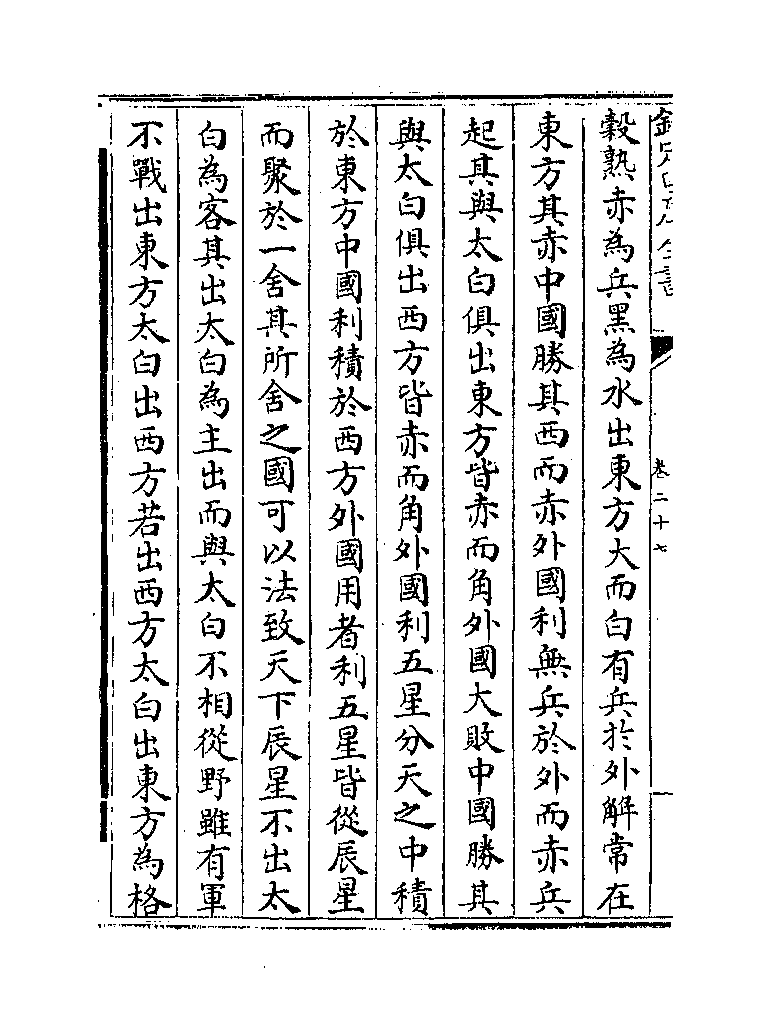 欽定四庫全書
卷二十七
穀熟赤為兵黑為水出東方大而白有兵於外解常在
東方其赤中國勝其西而赤外國利無兵於外而赤兵
起其與太白俱出東方皆赤而角外國大敗中國勝其
與太白俱出西方皆赤而角外國利五星分天之中積
於東方中國利積於西方外國用者利五星皆從辰星
而聚於一舍其所舍之國可以法致天下辰星不出太
白為客其出太白為主出而與太白不相從野雖有軍
不戰出東方太白出西方若出西方太白出東方為格